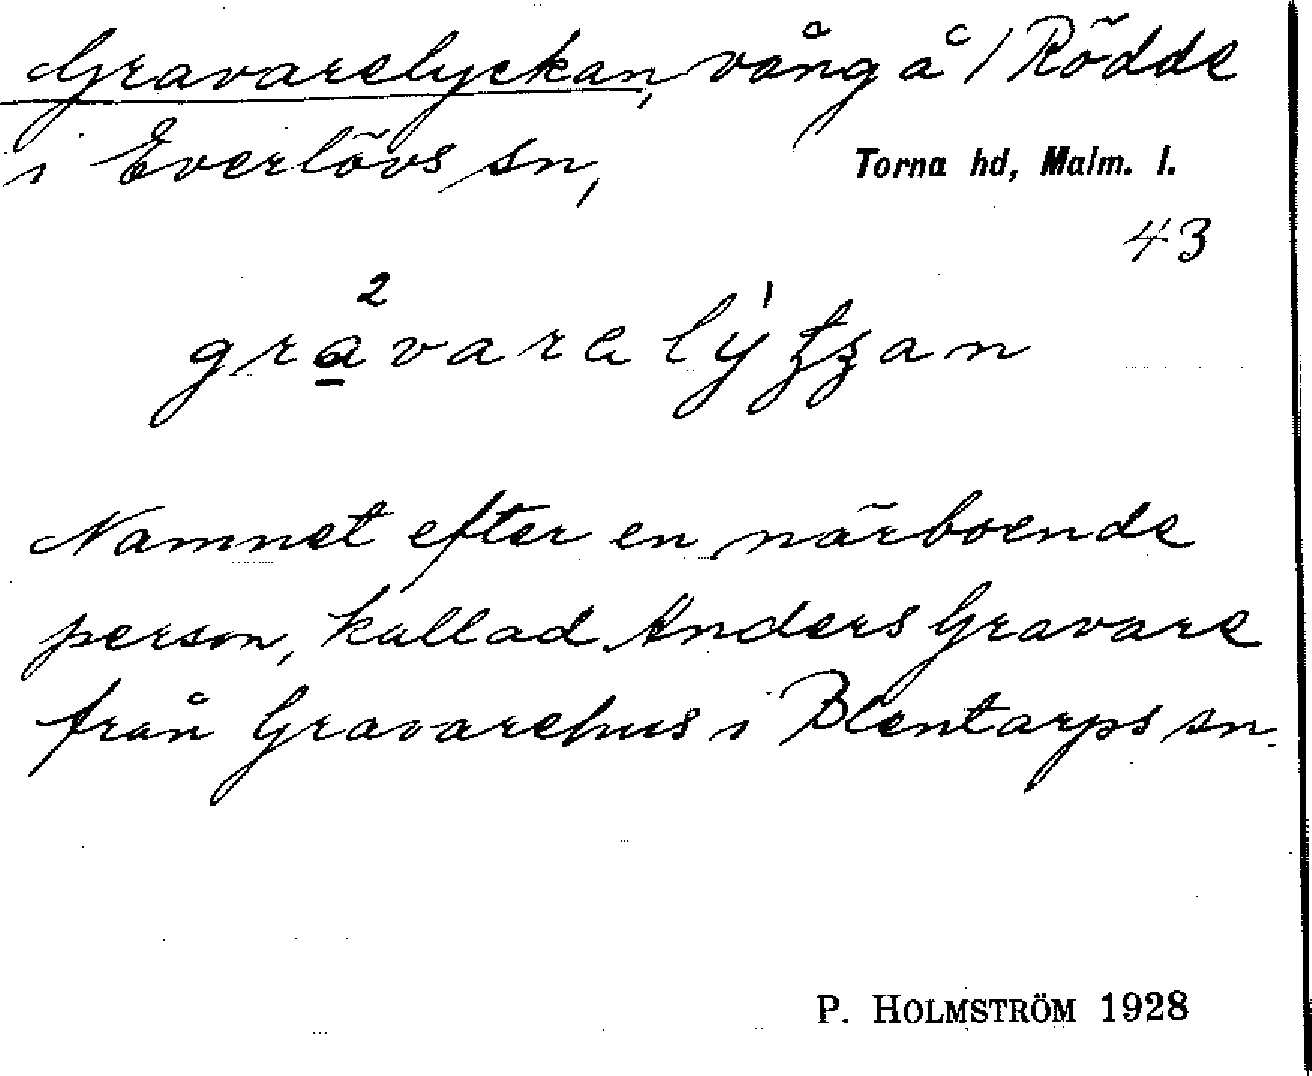 Gravarelyckan, vång å 1 Rödde
i Everlövs sn,
Torna hd, Malm. l.
43
Namnet efter en närboende
person, kallad Anders Gravare
från Gravarehus i Blentarps sn.
P. HOLMSTRÖM 1928